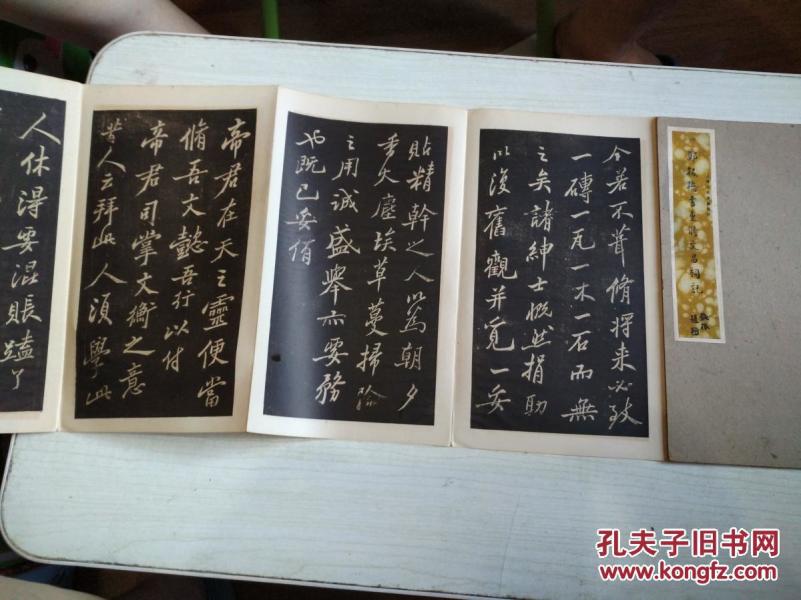 鄭板橋書重脩文昌祠記
今若不葺脩將来必致
一磚一瓦一木一石而無
之矣諸紳士慨然捐助
以復舊觀并覓一妥
貼精幹之人以為朝夕
香火塵埃草蔓掃除
之用誠盛舉亦要務
也既已妥侑
帝君在天之靈便當
脩吾文懿吾行以付
帝君司掌文衡之意
昔人云拜此人須學此
人休得要混賬磕了
孔夫子旧书网
www.kongfz.com